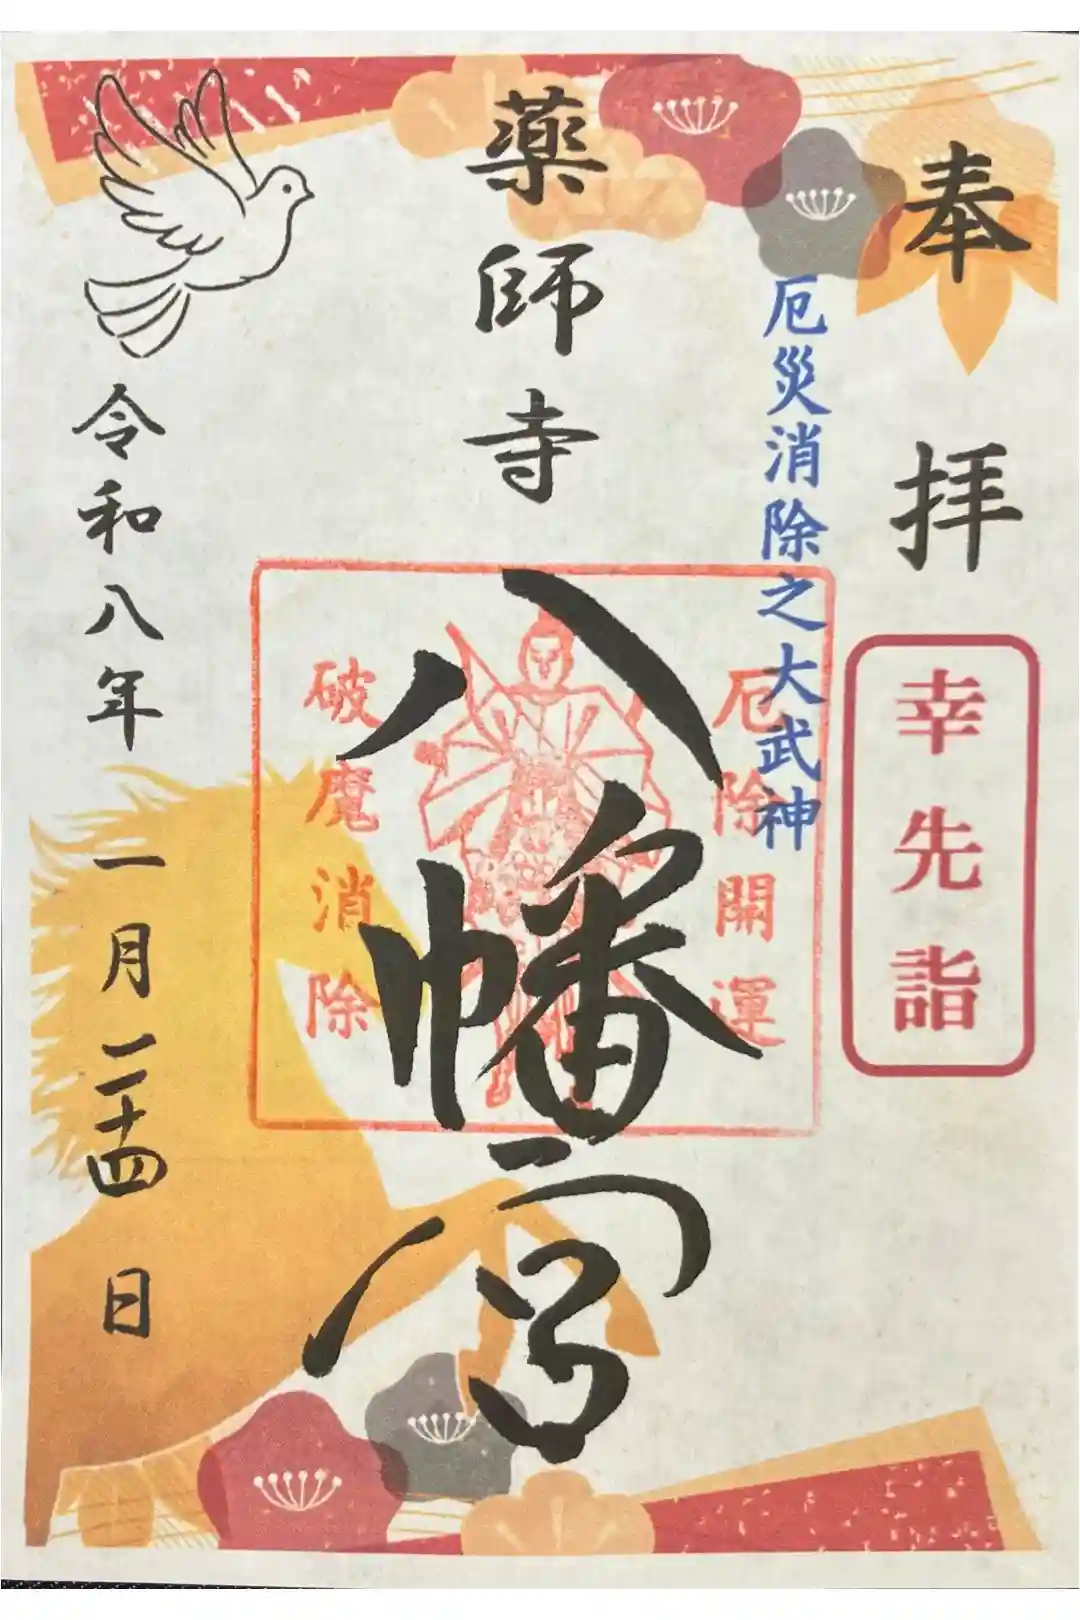 奉拝
幸先詣
厄災消除之大武神
厄除開運
薬師寺
八幡宮
破魔消除
令和八年一月二十四日